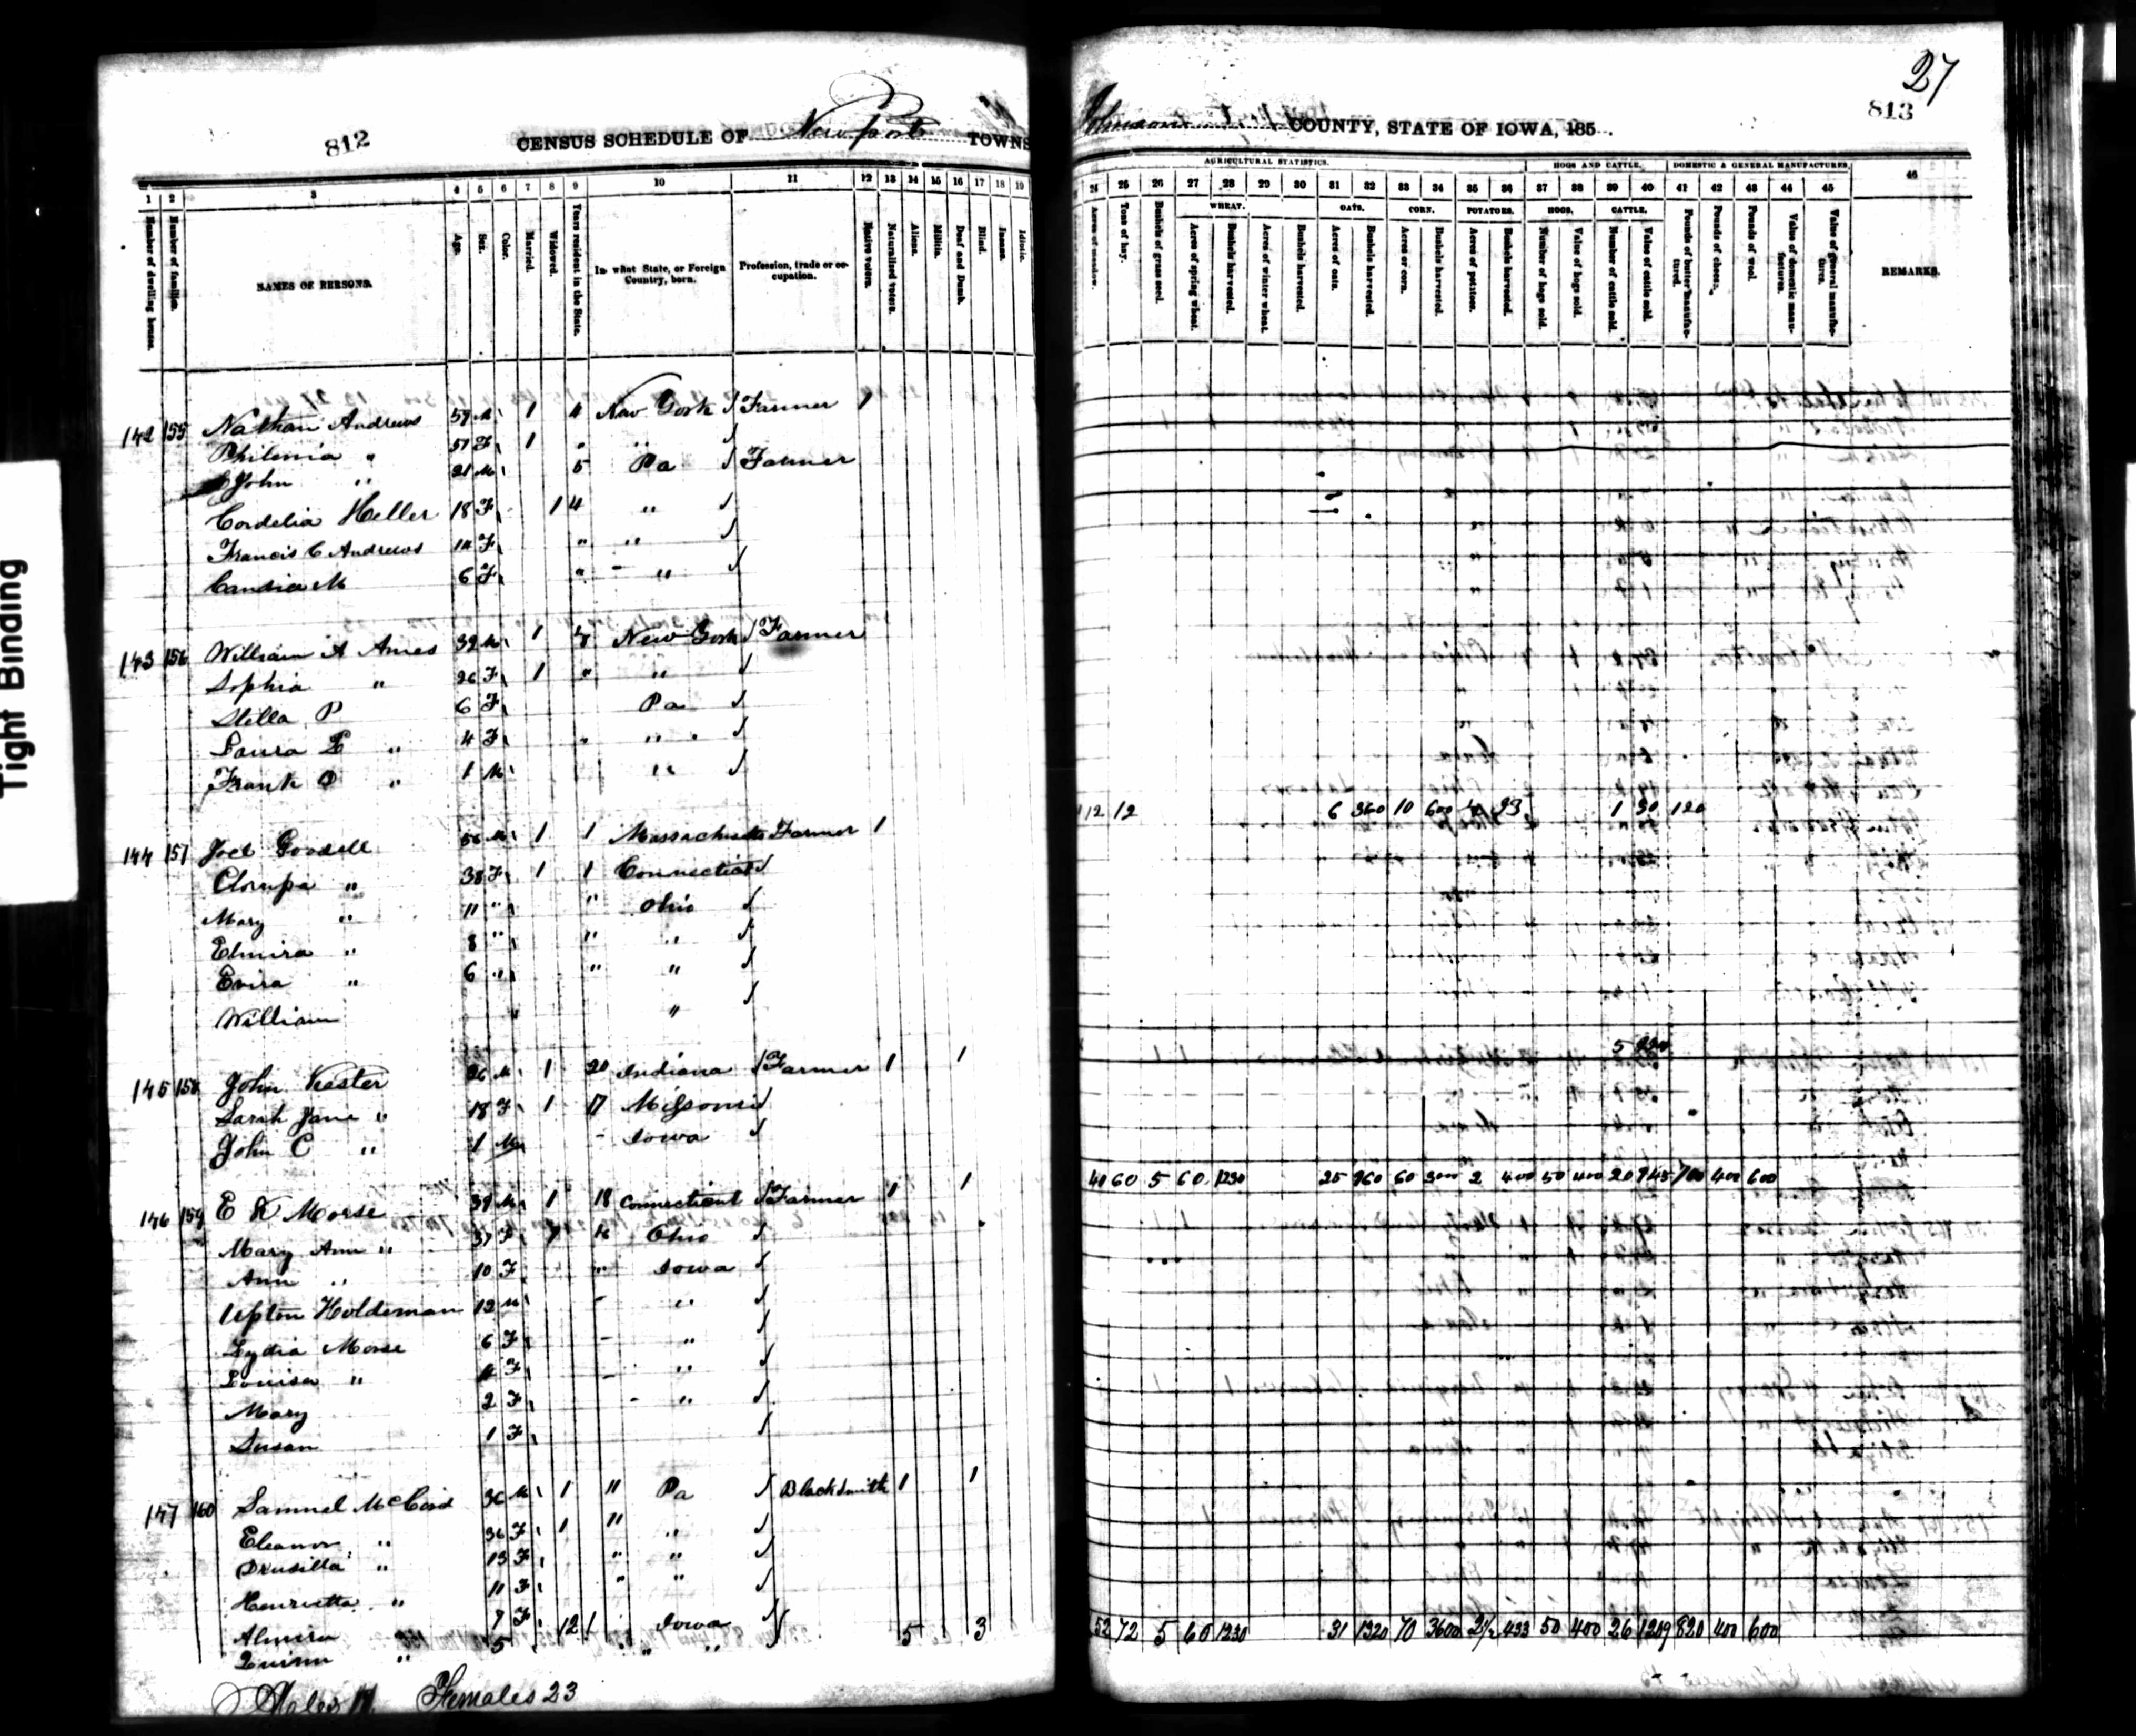 Tight Binding
812
CENSUS SCHEDULE OF New Port TOWNS
27
813
Johnson COUNTY, STATE OF IOWA, 185 .
1 2 3 4 5 6 7 8 9 10 11 12 13 14 15 16 17 18 19
Number of dwelling house.
Number of families.
NAMES OF PERSONS.
Age.
Sex.
Color.
Married.
Widowed.
Years resident in the State.
In what State, or Foreign Country, born.
Profession, trade or occupation.
Native voters.
Naturalized voters.
Aliens.
Militia.
Deaf and Dumb.
Blind.
Insane.
Idiotic.
142 155 Nathan Andrews 59 M 1 4 New York Farmer 1
Philenia " 51 F 1 " "
John " 21 M 5 Pa Farmer
Cordelia Heller 18 F 1 4 "
Francis C Andrews 14 F " "
Candia M 6 F " "
143 156 William A Ames 39 M 1 New York Farmer
Sophia " 26 F 1 " "
Stella P 6 F Pa
Laura L " 4 F " "
Frank O " 1 M "
144 157 Joel Goodell 56 M 1 1 Massachusetts Farmer 1
" 38 F 1 1 Connecticut
Mary " 11 " " Ohio
Elmira " 8 " " "
Evira " 6 " " "
William "
145 158 John Kester 26 M 1 20 Indiana Farmer 1 1
Sarah Jane " 18 F 1 17 Missouri
John C " 1 M - Iowa
146 159 E K Morse 39 M 1 18 Connecticut Farmer 1 1
Mary Ann " 37 F 1 16 Ohio
Ann " 10 F " Iowa
Upton Holdeman 12 M - "
Lydia Morse 6 F - "
Louisa " 4 F - "
Mary 2 F - "
Susan 1 F
147 160 Samuel McCord 36 M 1 11 Pa Blacksmith 1 1
Eleanor " 36 F 1 11 "
Drusilla " 13 F " "
Henrietta " 11 F " "
Almira 7 F 12 1 Iowa 5 3
" 5 " "
Males 17 Females 23
AGRICULTURAL STATISTICS.
HOGS AND CATTLE.
DOMESTIC & GENERAL MANUFACTURES.
24 25 26 27 28 29 30 31 32 33 34 35 36 37 38 39 40 41 42 43 44 45 46
WHEAT. OATS. CORN. POTATOES. HOGS. CATTLE.
Acres of meadow.
Tons of hay.
Bushels of grass seed.
Acres of spring wheat.
Bushels harvested.
Acres of winter wheat.
Bushels harvested.
Acres of oats.
Bushels harvested.
Acres or corn.
Bushels harvested.
Acres of potatoes.
Bushels harvested.
Number of hogs sold.
Value of hogs sold.
Number of cattle sold.
Value of cattle sold.
Pounds of butter manufactured.
Pounds of cheese.
Pounds of wool.
Value of domestic manufactures.
Value of general manufactures.
REMARKS.
12 12 6 360 10 600 1/2 33 1 30 120
5
40 60 5 60 1230 25 960 60 3000 2 400 50 400 20 945 700 400 600
52 72 5 60 1230 31 1320 70 3600 2 1/2 433 50 400 26 1209 820 400 600